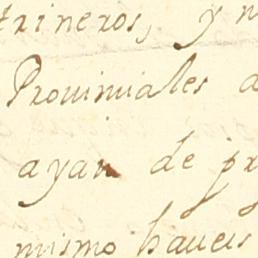 trineros, y
Prouinciales a
ayan de pr
mismo haueis